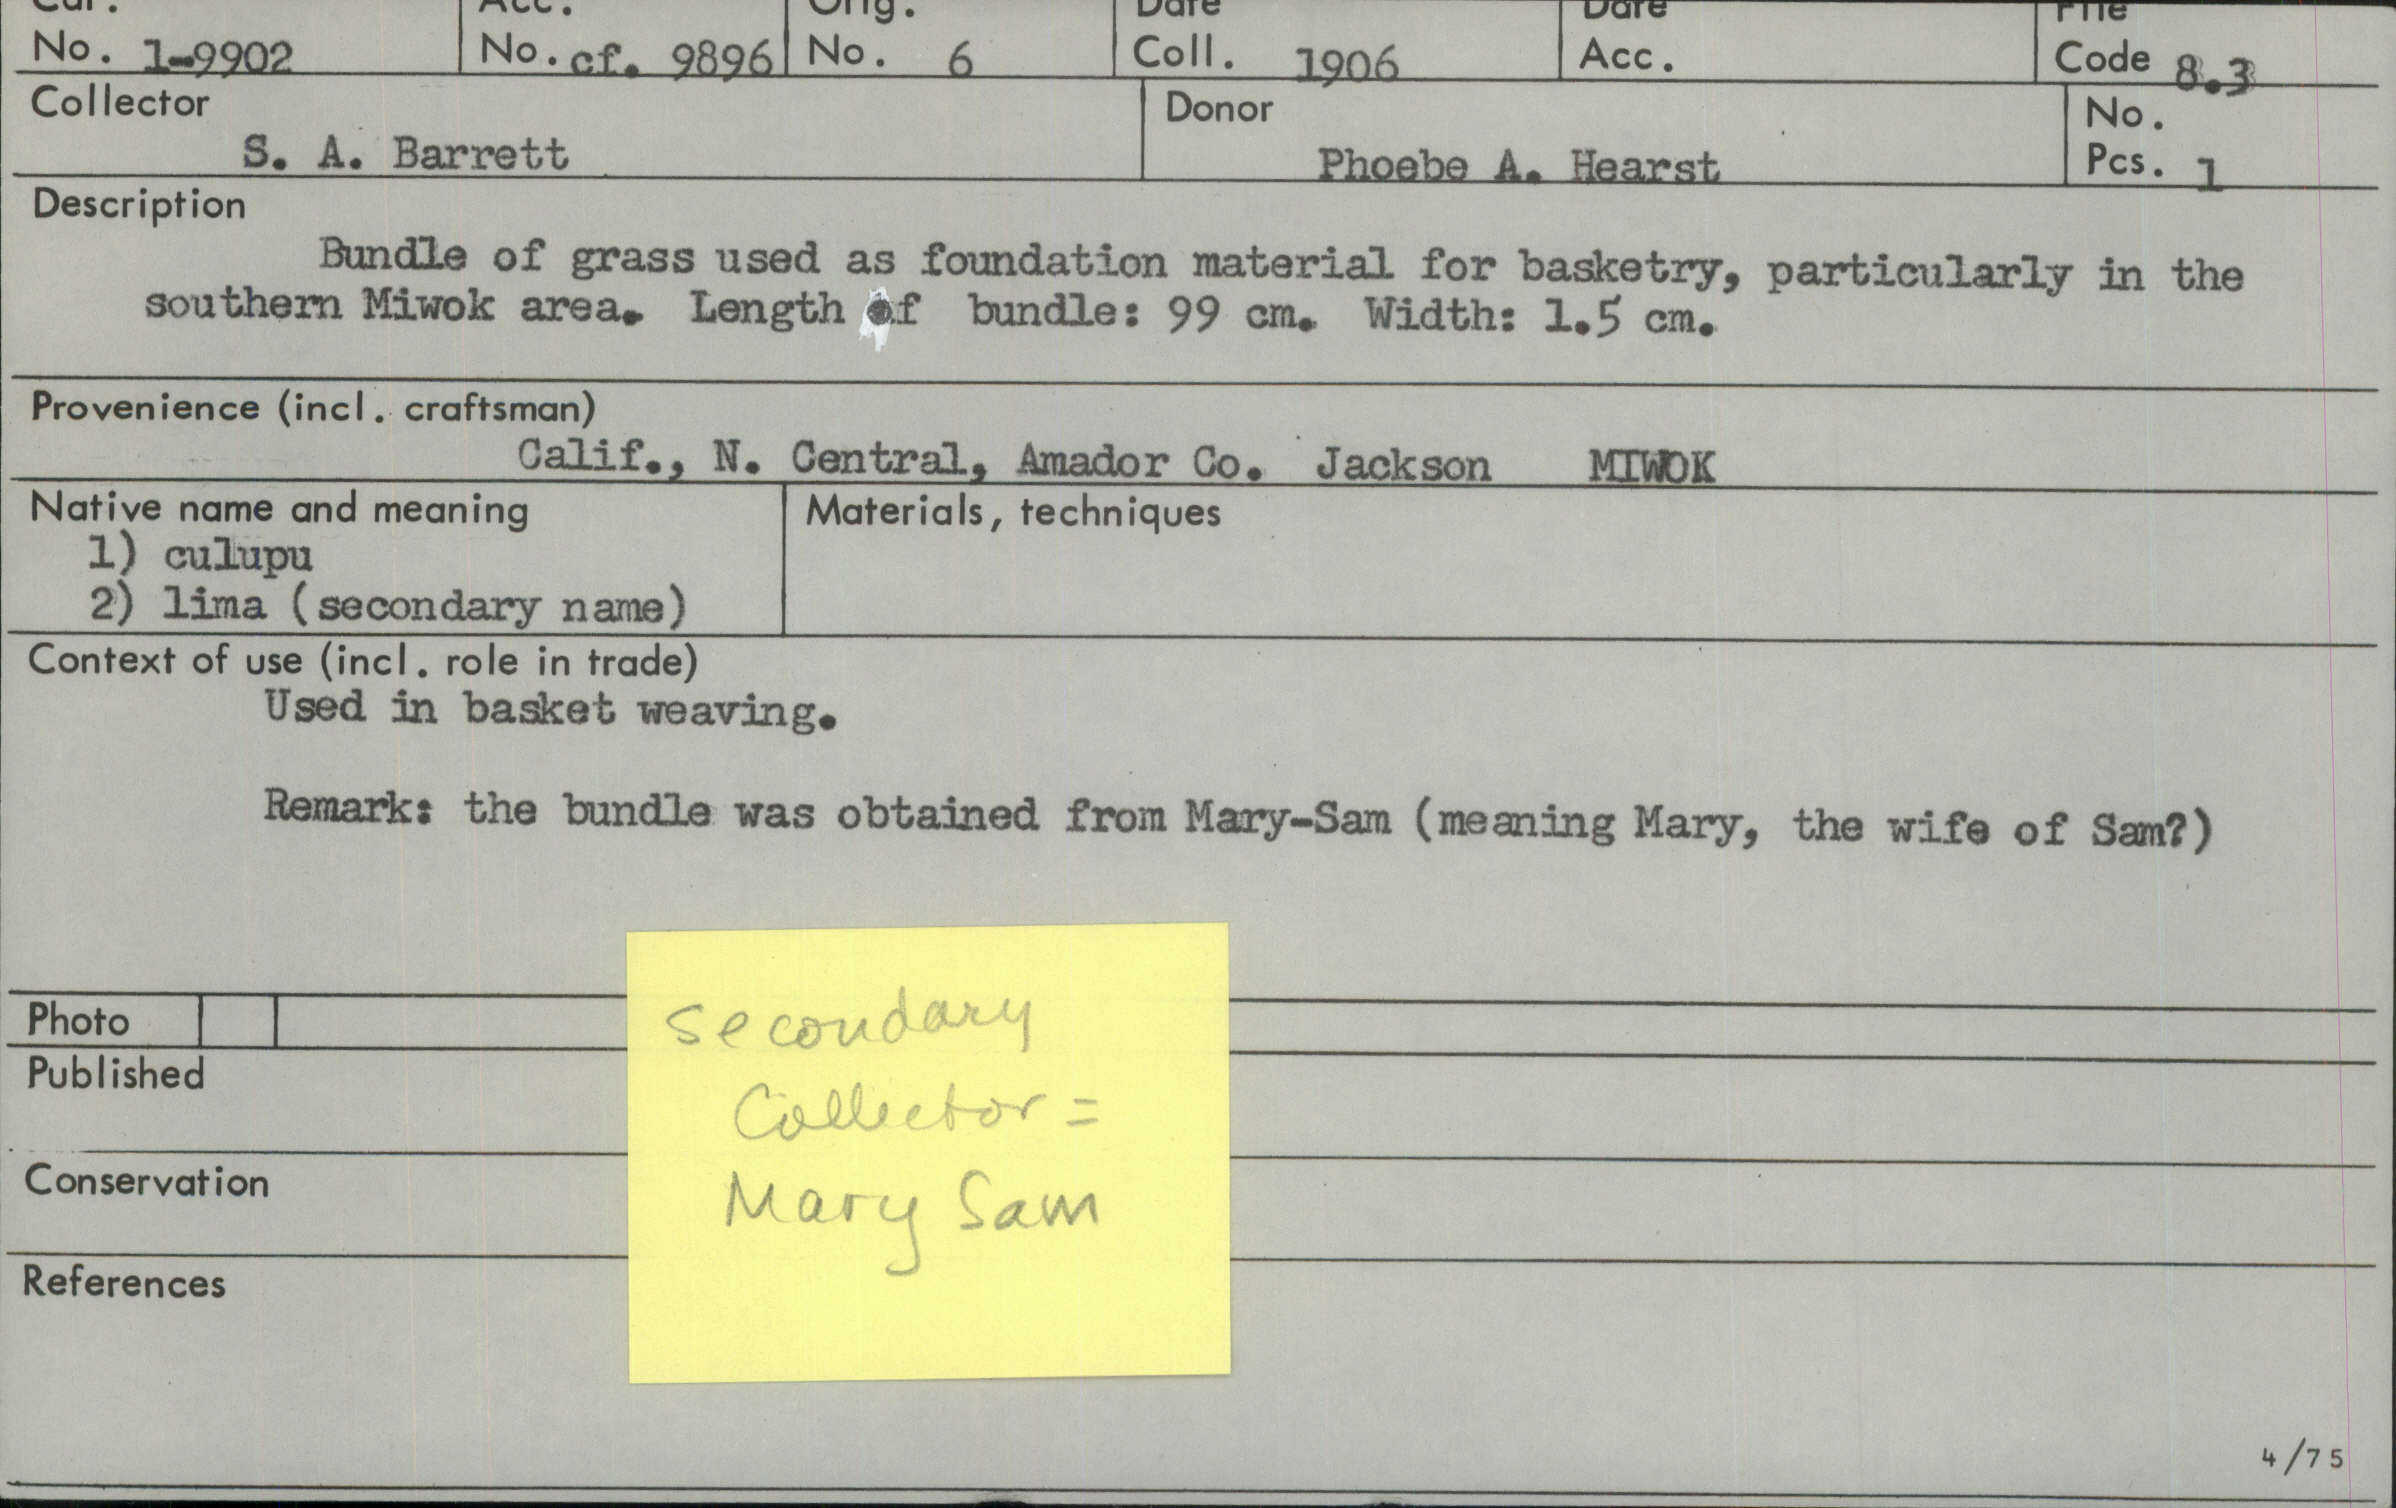 Cat. Acc. Orig. Date Date File
No. 1-9902 No. cf. 9896 No. 6 Coll. 1906 Acc. Code 8.3
Collector Donor No.
S. A. Barrett Phoebe A. Hearst Pcs. 1
Description
Bundle of grass used as foundation material for basketry, particularly in the
southern Miwok area. Length of bundle: 99 cm. Width: 1.5 cm.
Provenience (incl. craftsman)
Calif., N. Central, Amador Co. Jackson MIWOK
Native name and meaning Materials, techniques
1) culupu
2) lima (secondary name)
Context of use (incl. role in trade)
Used in basket weaving.
Remark: the bundle was obtained from Mary-Sam (meaning Mary, the wife of Sam?)
Photo
Published
Conservation
References
Secondary
Collector =
Mary Sam
4/75